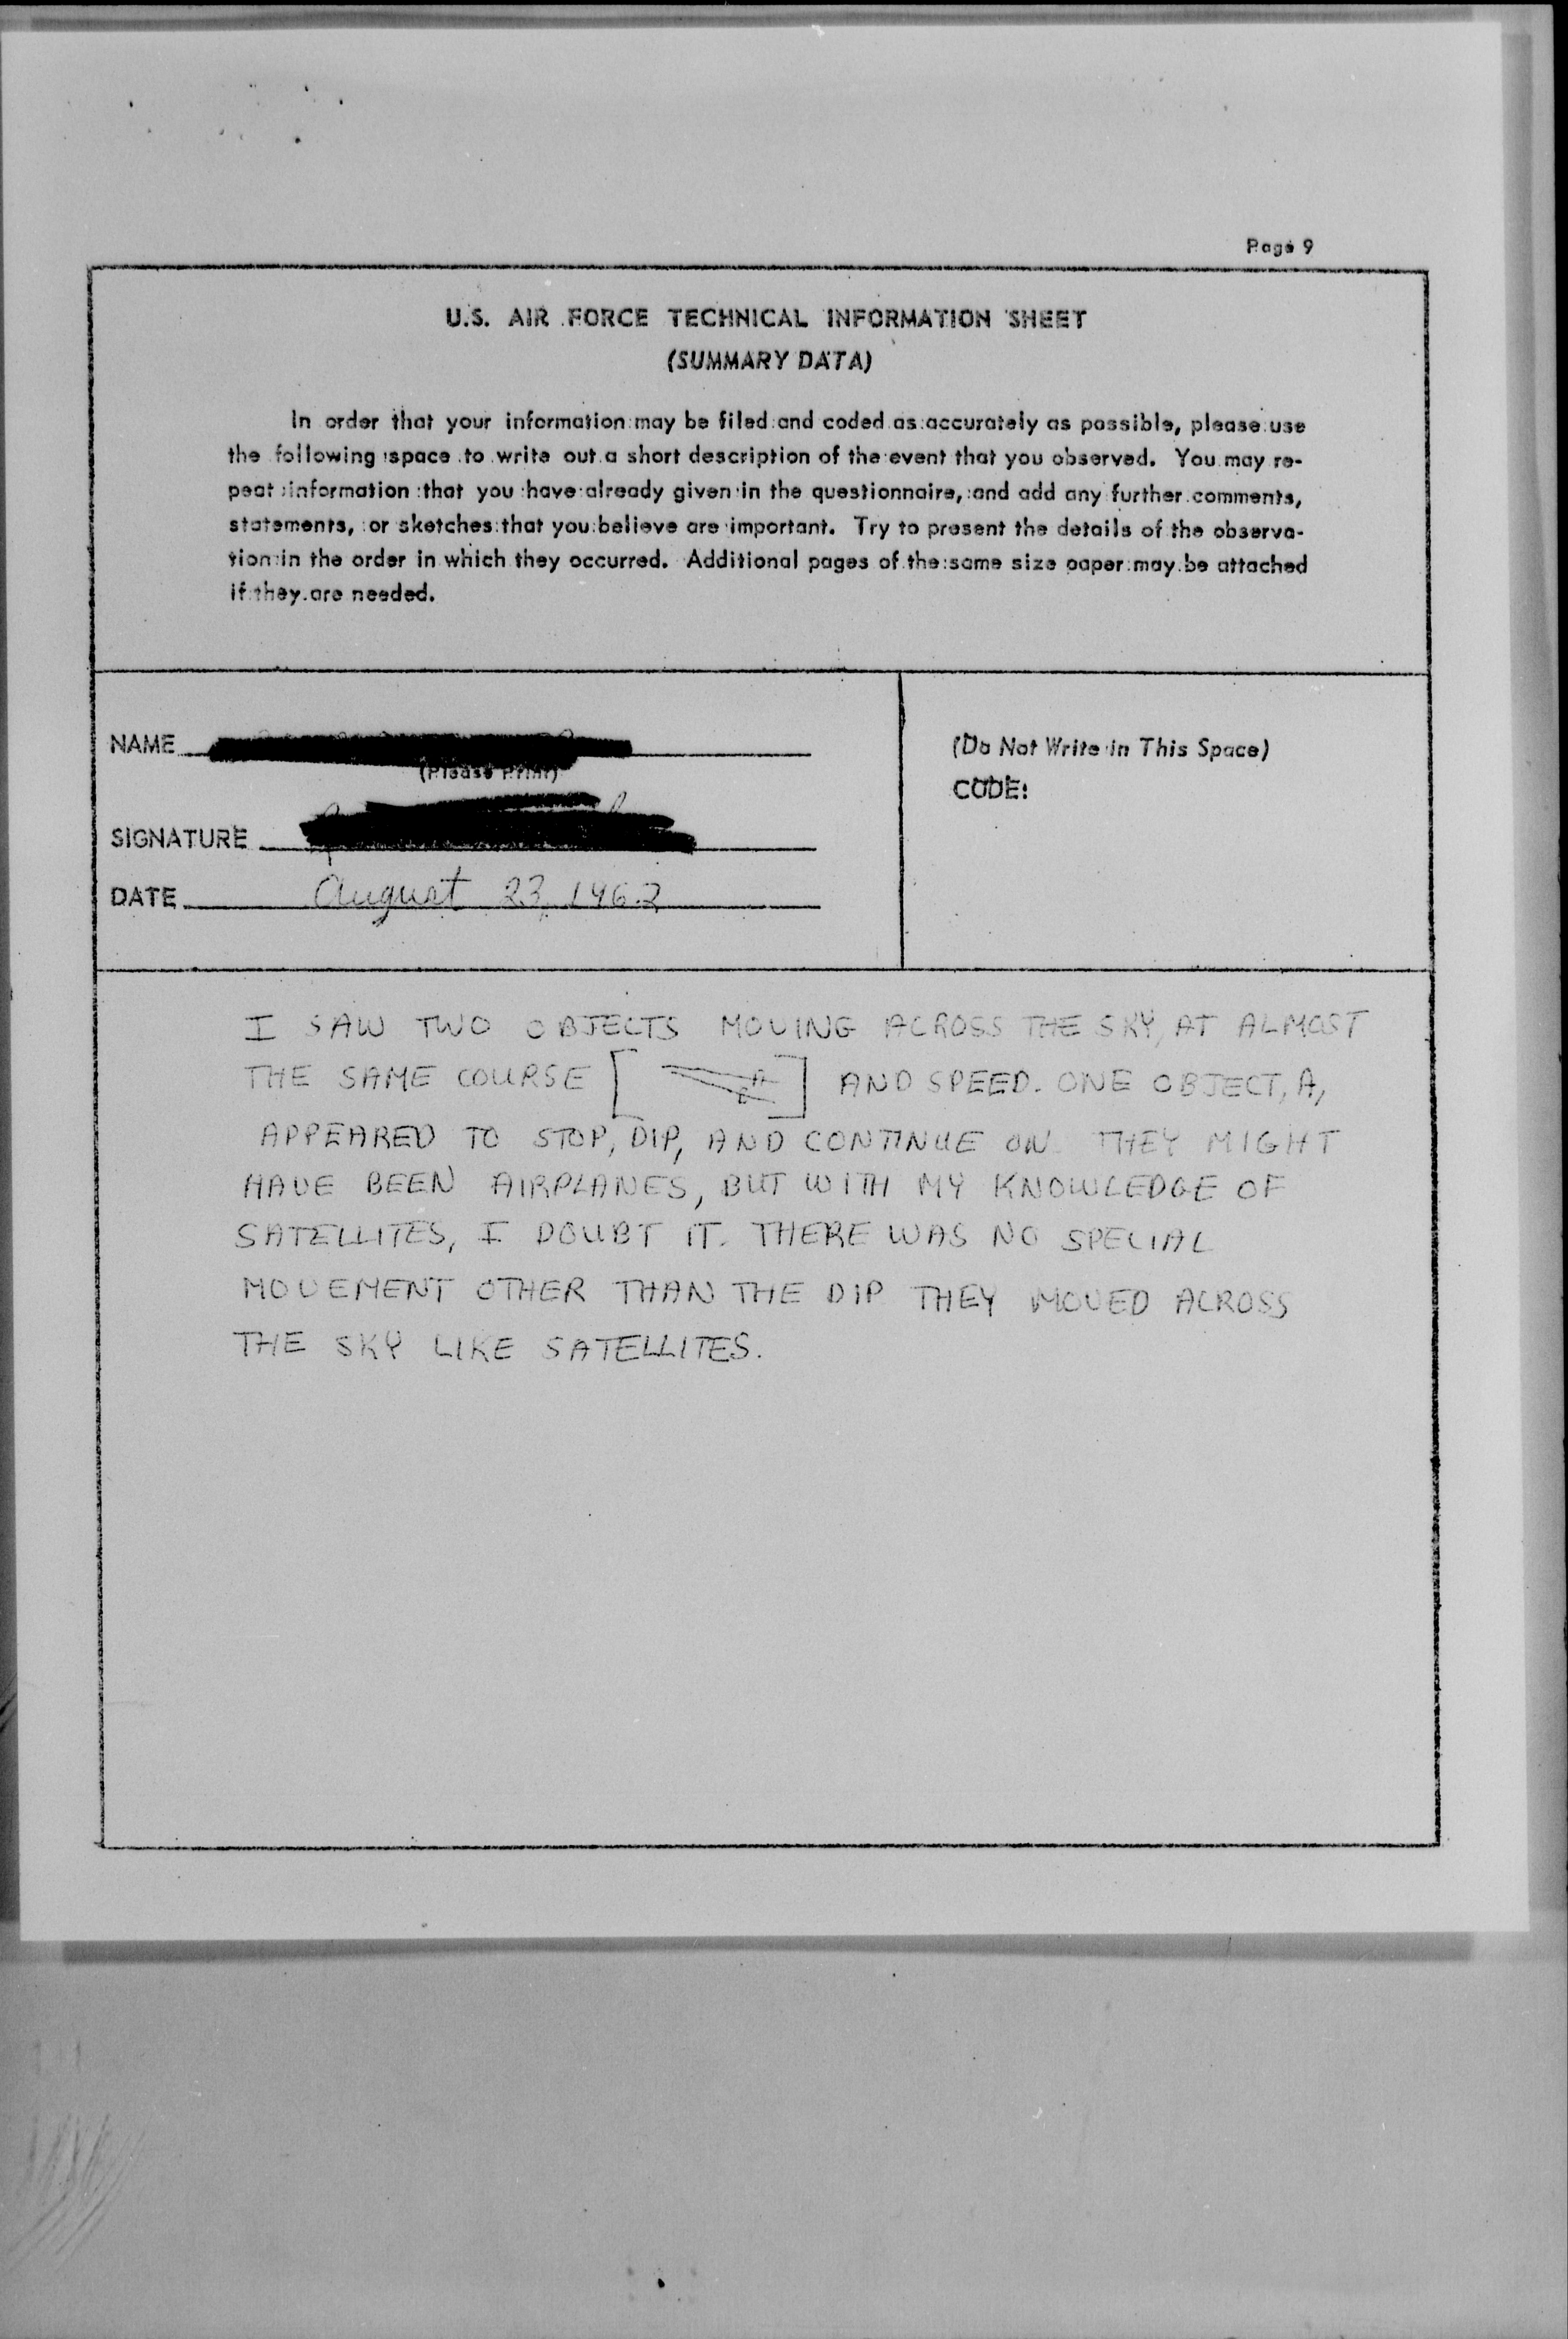 Page 9
U.S. AIR FORCE TECHNICAL INFORMATION SHEET
(SUMMARY DATA)
In order that your information may be filed and coded as accurately as possible, please use
the following space to write out a short description of the event that you observed. You may re-
peat information that you have already given in the questionnaire, and add any further comments,
statements, or sketches that you believe are important. Try to present the details of the observa-
tion in the order in which they occurred. Additional pages of the same size paper may be attached
if they are needed.
NAME
(Please Print)
SIGNATURE
DATE August 23, 1962
(Do Not Write in This Space)
CODE:
I SAW TWO OBJECTS MOVING ACROSS THE SKY, AT ALMOST
THE SAME COURSE [ A B ] AND SPEED. ONE OBJECT, A,
APPEARED TO STOP, DIP, AND CONTINUE ON. THEY MIGHT
HAVE BEEN AIRPLANES, BUT WITH MY KNOWLEDGE OF
SATELLITES, I DOUBT IT. THERE WAS NO SPECIAL
MOVEMENT OTHER THAN THE DIP. THEY MOVED ACROSS
THE SKY LIKE SATELLITES.